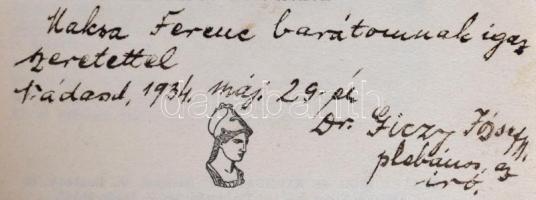 Maksa Ferenc barátomnak igaz
szeretettel
Nádasd, 1934. máj. 29-én
Dr. Giczy József
plébános, az
író.